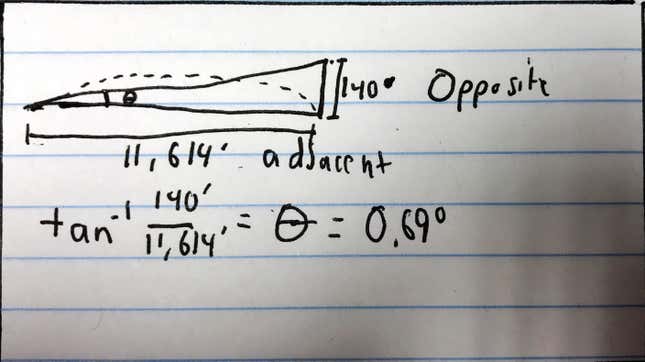 θ
140° Opposite
11,614' adjacent
tan⁻¹ 140'/11,614' = θ = 0.69°